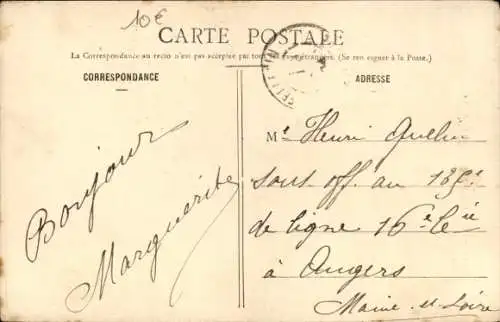 10€
CARTE POSTALE
La Correspondance au recto n'est pas acceptée par tous étrangers. (Se renseigner à la Poste.)
CORRESPONDANCE
ADRESSE
Bonjour
Marguerite
Mr Henri
sous off. au 135e
de ligne 16e Cie
à Angers
Maine-et-Loire